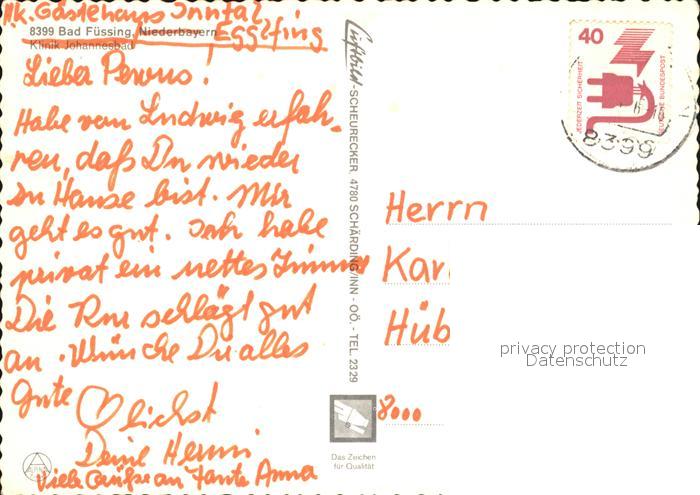 Gästehaus Inntal
8399 Bad Füssing, Niederbayern
Egglfing
Klinik Johannesbad
Lieber
Habe von Ludwig erfah-
ren, daß Du wieder
zu Hause bist. Mir
geht es gut. Ich habe
privat ein nettes Zimmer
Die Kur schlägt gut
an. Wünsche Dir alles
Gute
♡lichst
Deine Hermi
Viele Grüße an Tante Anna
Luftbild-SCHEURECKER, 4780 SCHÄRDING/INN - OÖ. - TEL. 2329
Das Zeichen
für Qualität
40
JEDERZEIT SICHERHEIT
DEUTSCHE BUNDESPOST
8399
Herrn
Karl
Hüb
8000
privacy protection
Datenschutz